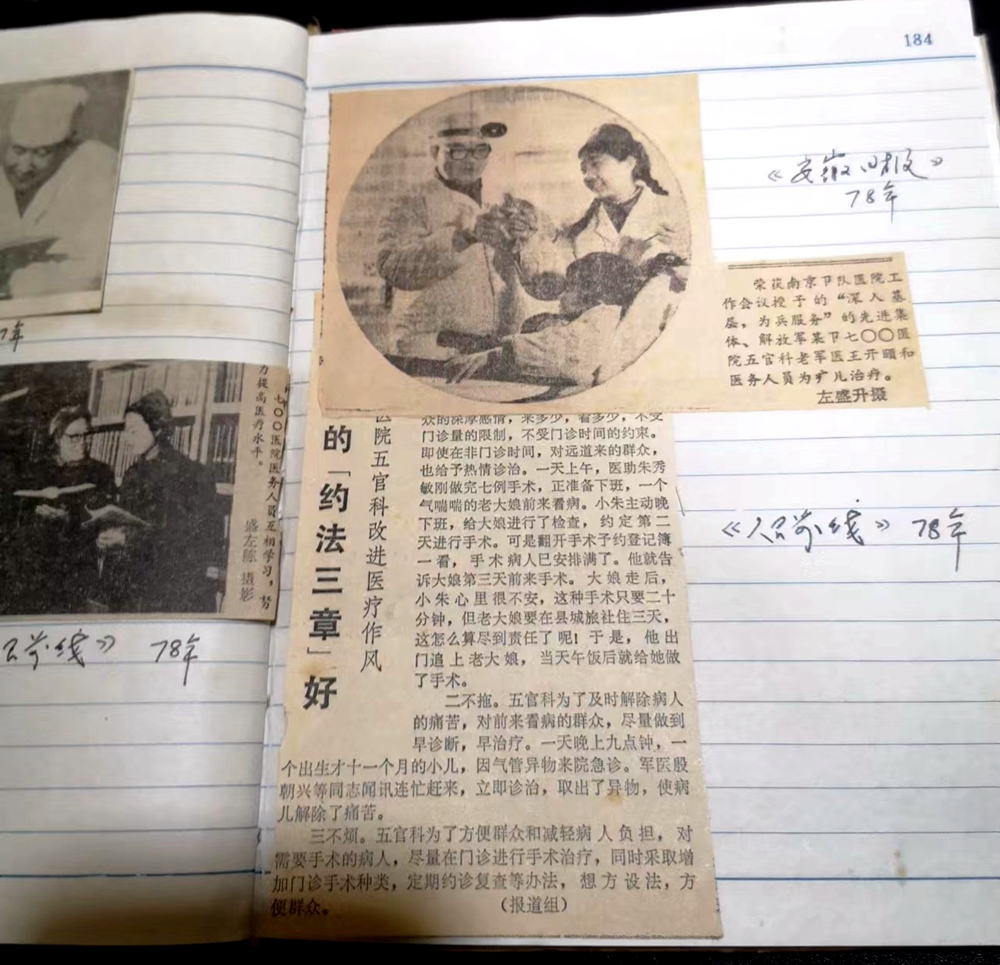 7年
七〇〇医院医务人员互相学习，努
力提高医疗水平。
盛左陈 摄影
前线》 78年
184
《安徽日报》
78年
荣获南京卩队医院工
作会议授予的“深入基
层，为兵服务”的先进集
体、解放军某卩七〇〇医
院五官科老军医王开颐和
医务人员为疒儿治疗。
左盛升摄
《人民前线》 78年
的「约法三章」好
医院五官科改进医疗作风
众的深厚感情，来多少，看多少，不受
门诊量的限制，不受门诊时间的约束。
即使在非门诊时间，对远道来的群众，
也给予热情诊治。一天上午，医助朱秀
敏刚做完七例手术，正准备下班，一个
气喘喘的老大娘前来看病。小朱主动晚
下班，给大娘进行了检查，约定第二
天进行手术。可是翻开手术予约登记簿
一看，手术病人已安排满了。他就告
诉大娘第三天前来手术。大娘走后，
小朱心里很不安，这种手术只要二十
分钟，但老大娘要在县城旅社住三天，
这怎么算尽到责任了呢！于是，他出
门追上老大娘，当天午饭后就给她做
了手术。
二不拖。五官科为了及时解除病人
的痛苦，对前来看病的群众，尽量做到
早诊断，早治疗。一天晚上九点钟，一
个出生才十一个月的小儿，因气管异物来院急诊。军医殷
朝兴等同志闻讯连忙赶来，立即诊治，取出了异物，使病
儿解除了痛苦。
三不烦。五官科为了方便群众和减轻病人负担，对
需要手术的病人，尽量在门诊进行手术治疗，同时采取增
加门诊手术种类，定期约诊复查等办法，想方设法，方
便群众。 （报道组）